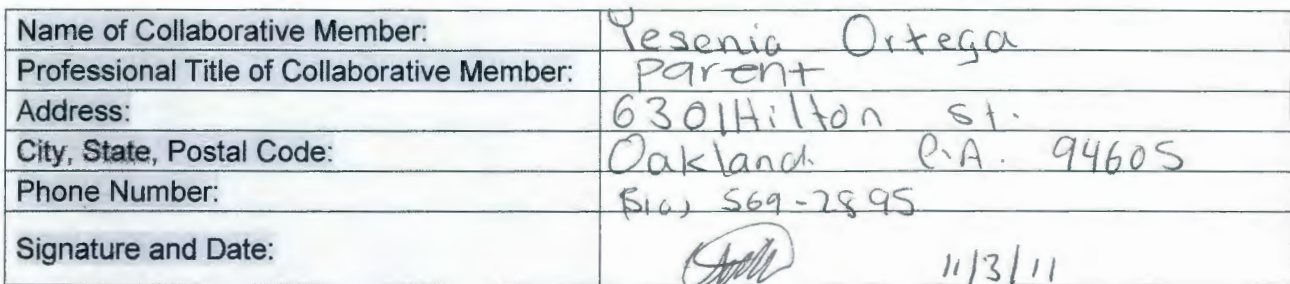 Name of Collaborative Member: Yesenia Ortega
Professional Title of Collaborative Member: Parent
Address: 6301 Hilton St.
City, State, Postal Code: Oakland. C.A. 94605
Phone Number: (510) 569-2895
Signature and Date: 11/3/11